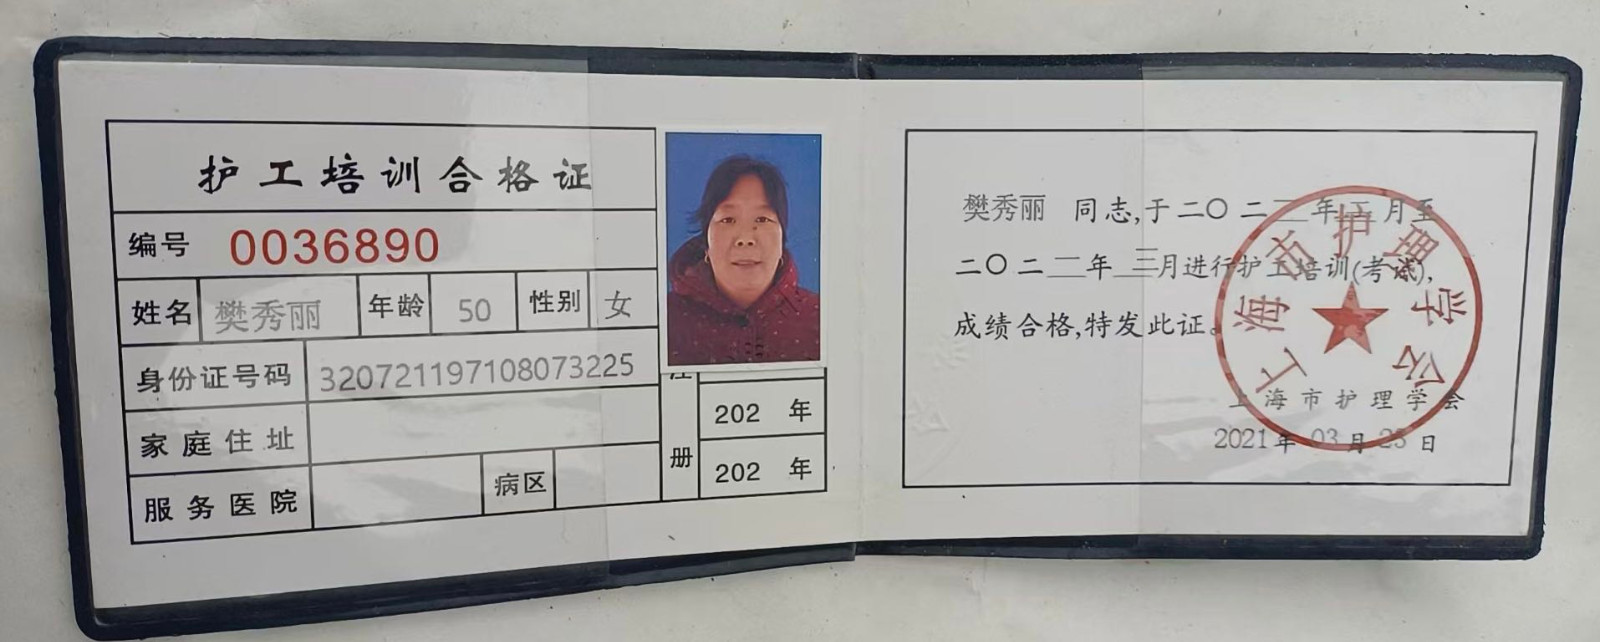 护工培训合格证
编号 0036890
姓名 樊秀丽 年龄 50 性别 女
身份证号码 320721197108073225
家庭住址
服务医院 病区
202 年
册 202 年
樊秀丽 同志,于二〇二 年 月至
二〇二一年 三月进行护工培训(考试),
成绩合格,特发此证。
上海市护理学会
2021年 03月 23日
上海市护理学会